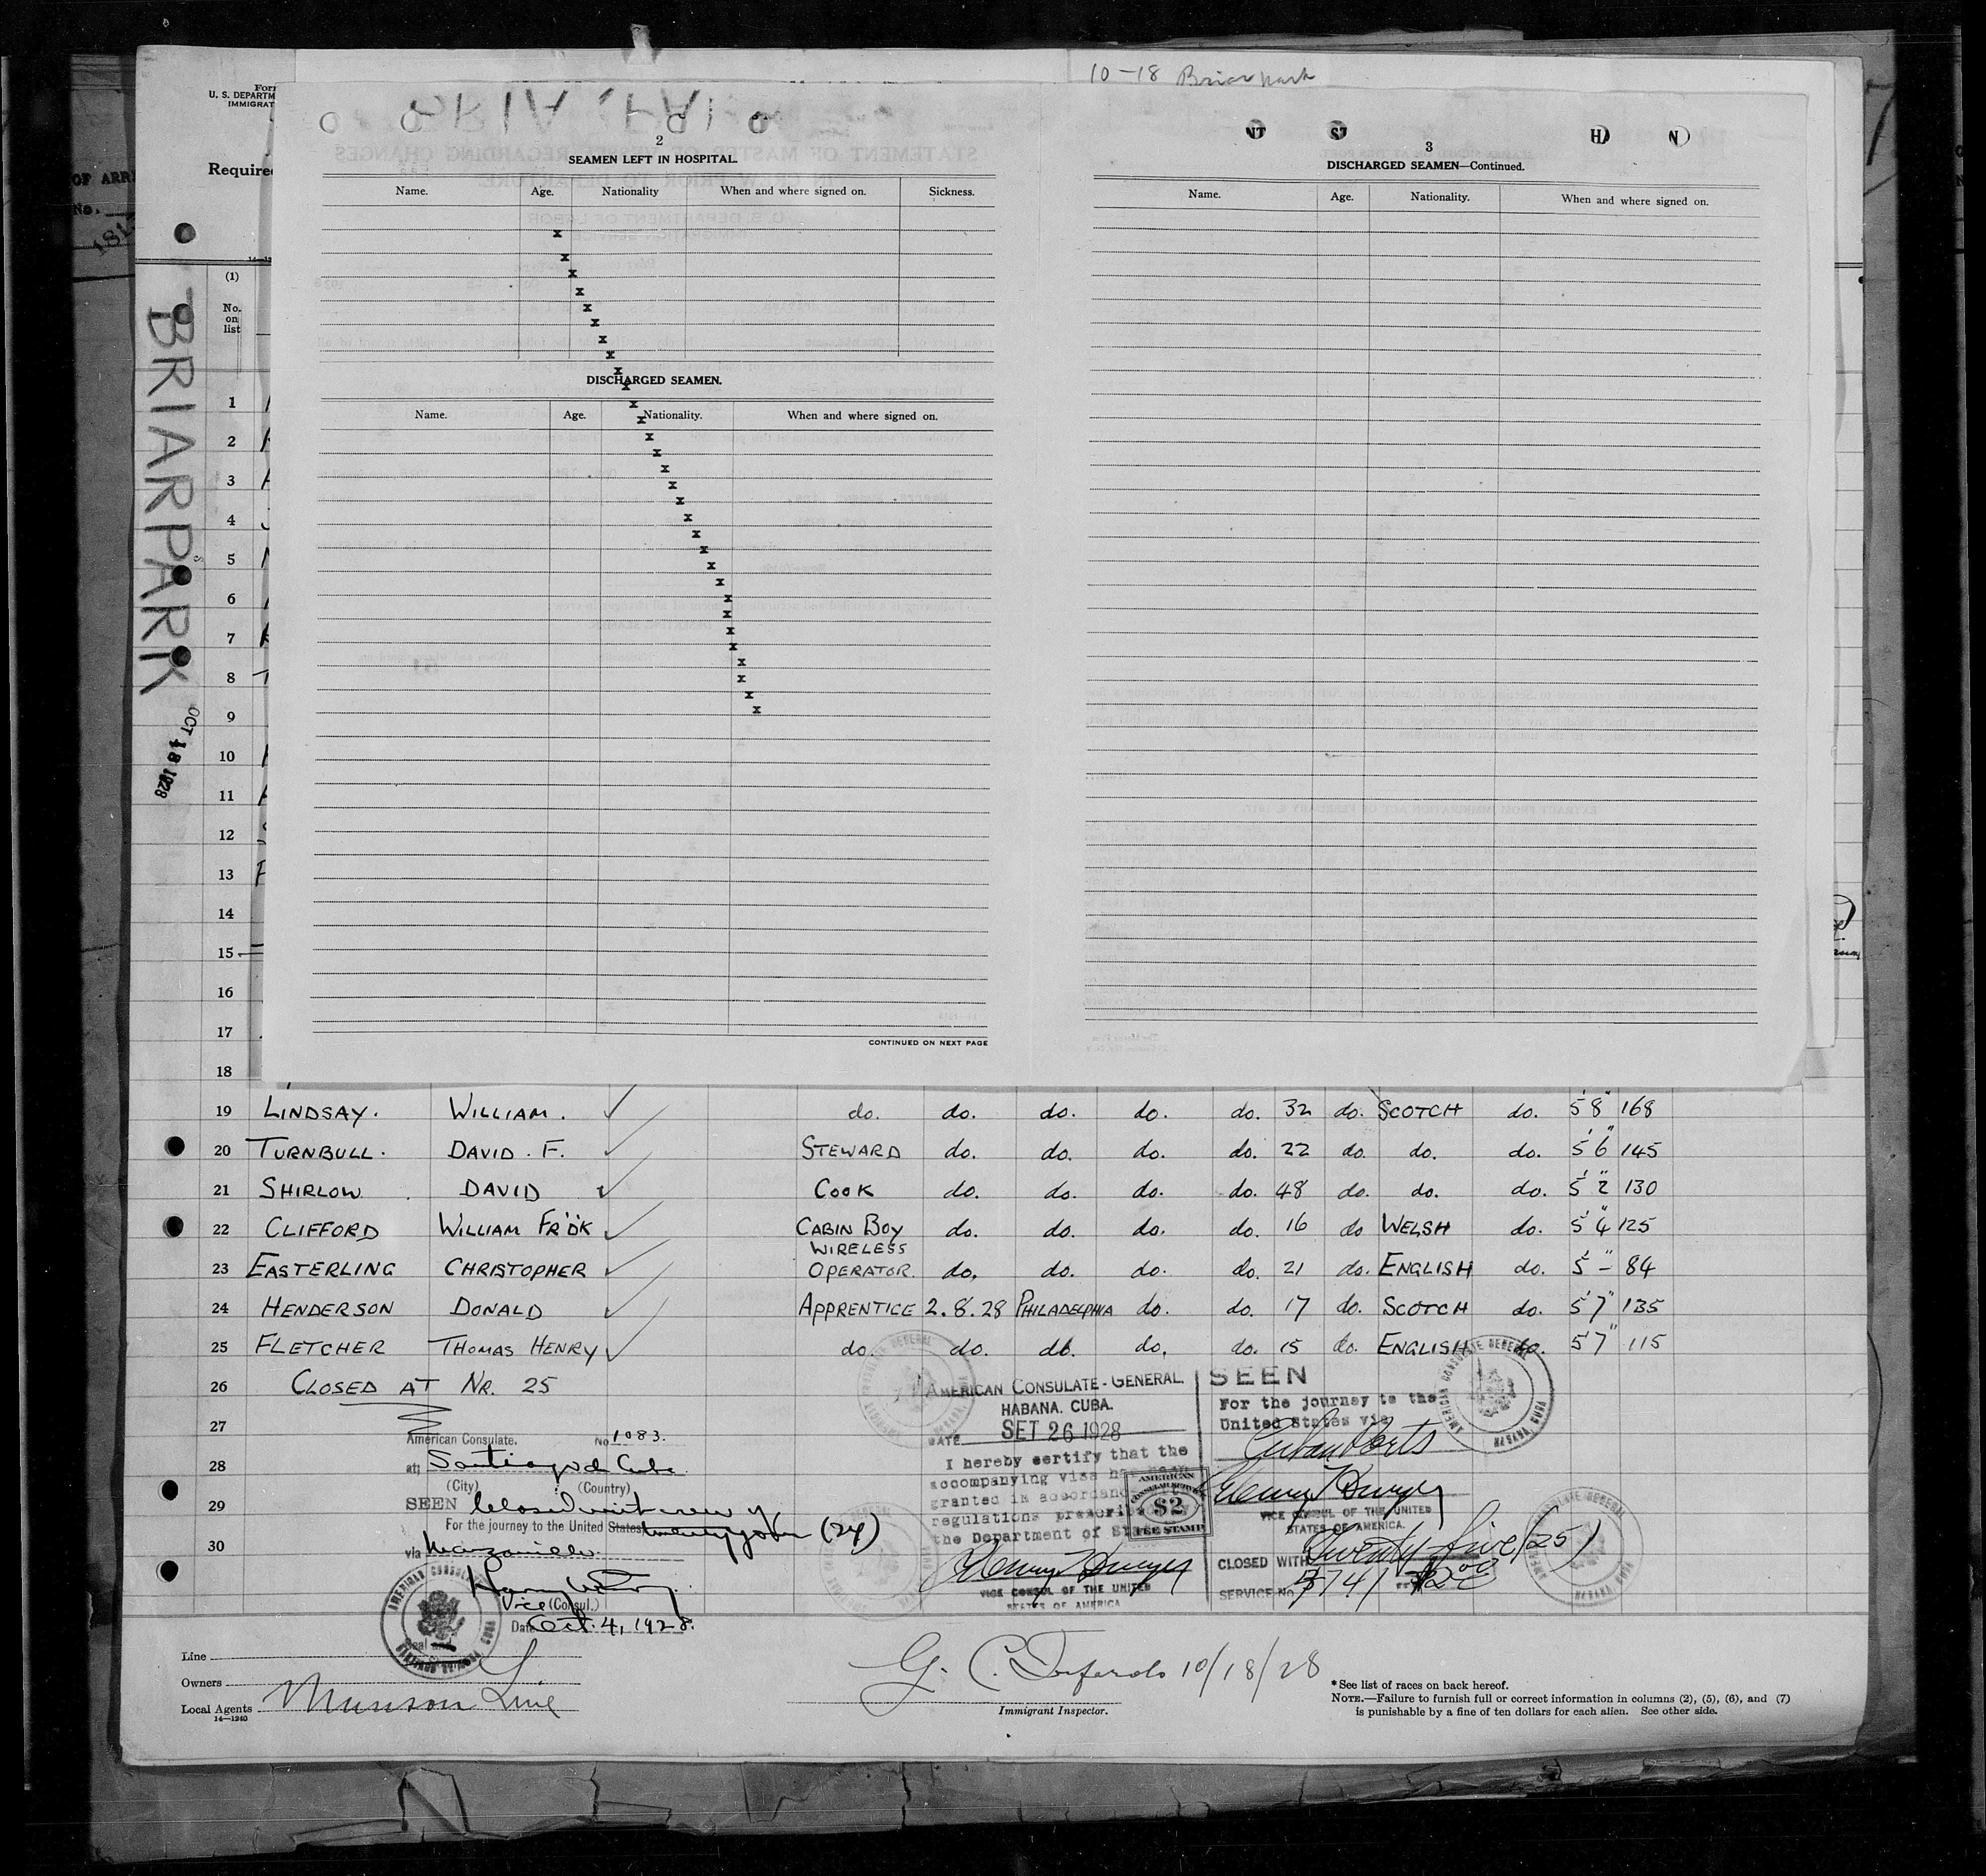 10-18 Briarpark
Form
U. S. DEPARTM
IMMIGRAT
Require
OF ARR
No.
181
(1)
No.
on
list
BRIARPARK
OCT 18 1928
2
SEAMEN LEFT IN HOSPITAL.
Name. Age. Nationality When and where signed on. Sickness.
DISCHARGED SEAMEN.
Name. Age. Nationality. When and where signed on.
CONTINUED ON NEXT PAGE
3
DISCHARGED SEAMEN—Continued.
Name. Age. Nationality. When and where signed on.
1
2
3
4
5
6
7
8
9
10
11
12
13
14
15
16
17
18
19 LINDSAY. WILLIAM. do. do. do. do. do. 32 do. SCOTCH do. 5'8" 168
20 TURNBULL. DAVID. F. STEWARD do. do. do. do. 22 do. do. do. 5'6" 145
21 SHIRLOW. DAVID COOK do. do. do. do. 48 do. do. do. 5'2" 130
22 CLIFFORD WILLIAM FR̈DK CABIN BOY do. do. do. do. 16 do WELSH do. 5'4" 125
23 EASTERLING CHRISTOPHER WIRELESS OPERATOR. do. do. do. do. 21 do. ENGLISH do. 5'-" 84
24 HENDERSON DONALD APPRENTICE 2.8.28 PHILADELPHIA do. do. 17 do. SCOTCH do. 5'7" 135
25 FLETCHER THOMAS HENRY do. do. do. do. do. 15 do. ENGLISH do. 5'7" 115
26 CLOSED AT NR. 25
27
28
29
30
American Consulate. No 1083.
at; Santiago de Cuba
(City) (Country)
SEEN Closed with crew of
For the journey to the United States twenty four (24)
via Manzanillo
Vice (Consul.)
Date Oct. 4, 1928.
AMERICAN CONSULATE-GENERAL.
HABANA. CUBA.
DATE SET 26 1928
I hereby certify that the
accompanying visa has been
granted in accordance
regulations prescribed
the Department of State
AMERICAN
CONSULAR SERVICE
$2
FEE STAMP
VICE CONSUL OF THE UNITED
STATES OF AMERICA
SEEN
For the journey to the
United States via
Cuban Ports
VICE CONSUL OF THE UNITED
STATES OF AMERICA.
CLOSED WITH Twenty five (25)
SERVICE No. 3741 $2.00
Line
Owners
Local Agents Munson Line
14—1240
G. C. 10/18/28
Immigrant Inspector.
*See list of races on back hereof.
NOTE.—Failure to furnish full or correct information in columns (2), (5), (6), and (7)
is punishable by a fine of ten dollars for each alien. See other side.